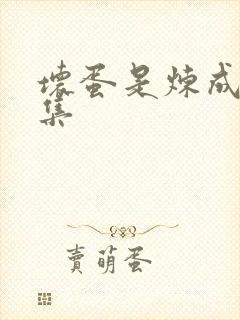 壞蛋是煉成
集
賣萌蛋